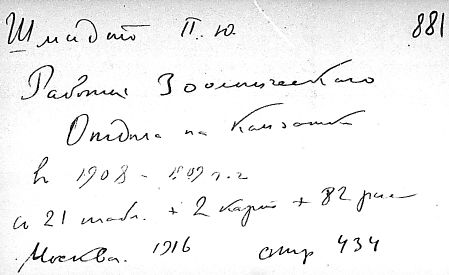 Шмидт П. Ю. 881
Работы Зоологического
Отдела на Камчатке
в 1908 - 1909 г.г
с 21 табл. + 2 карт + 82 рис
Москва. 1916 стр 434